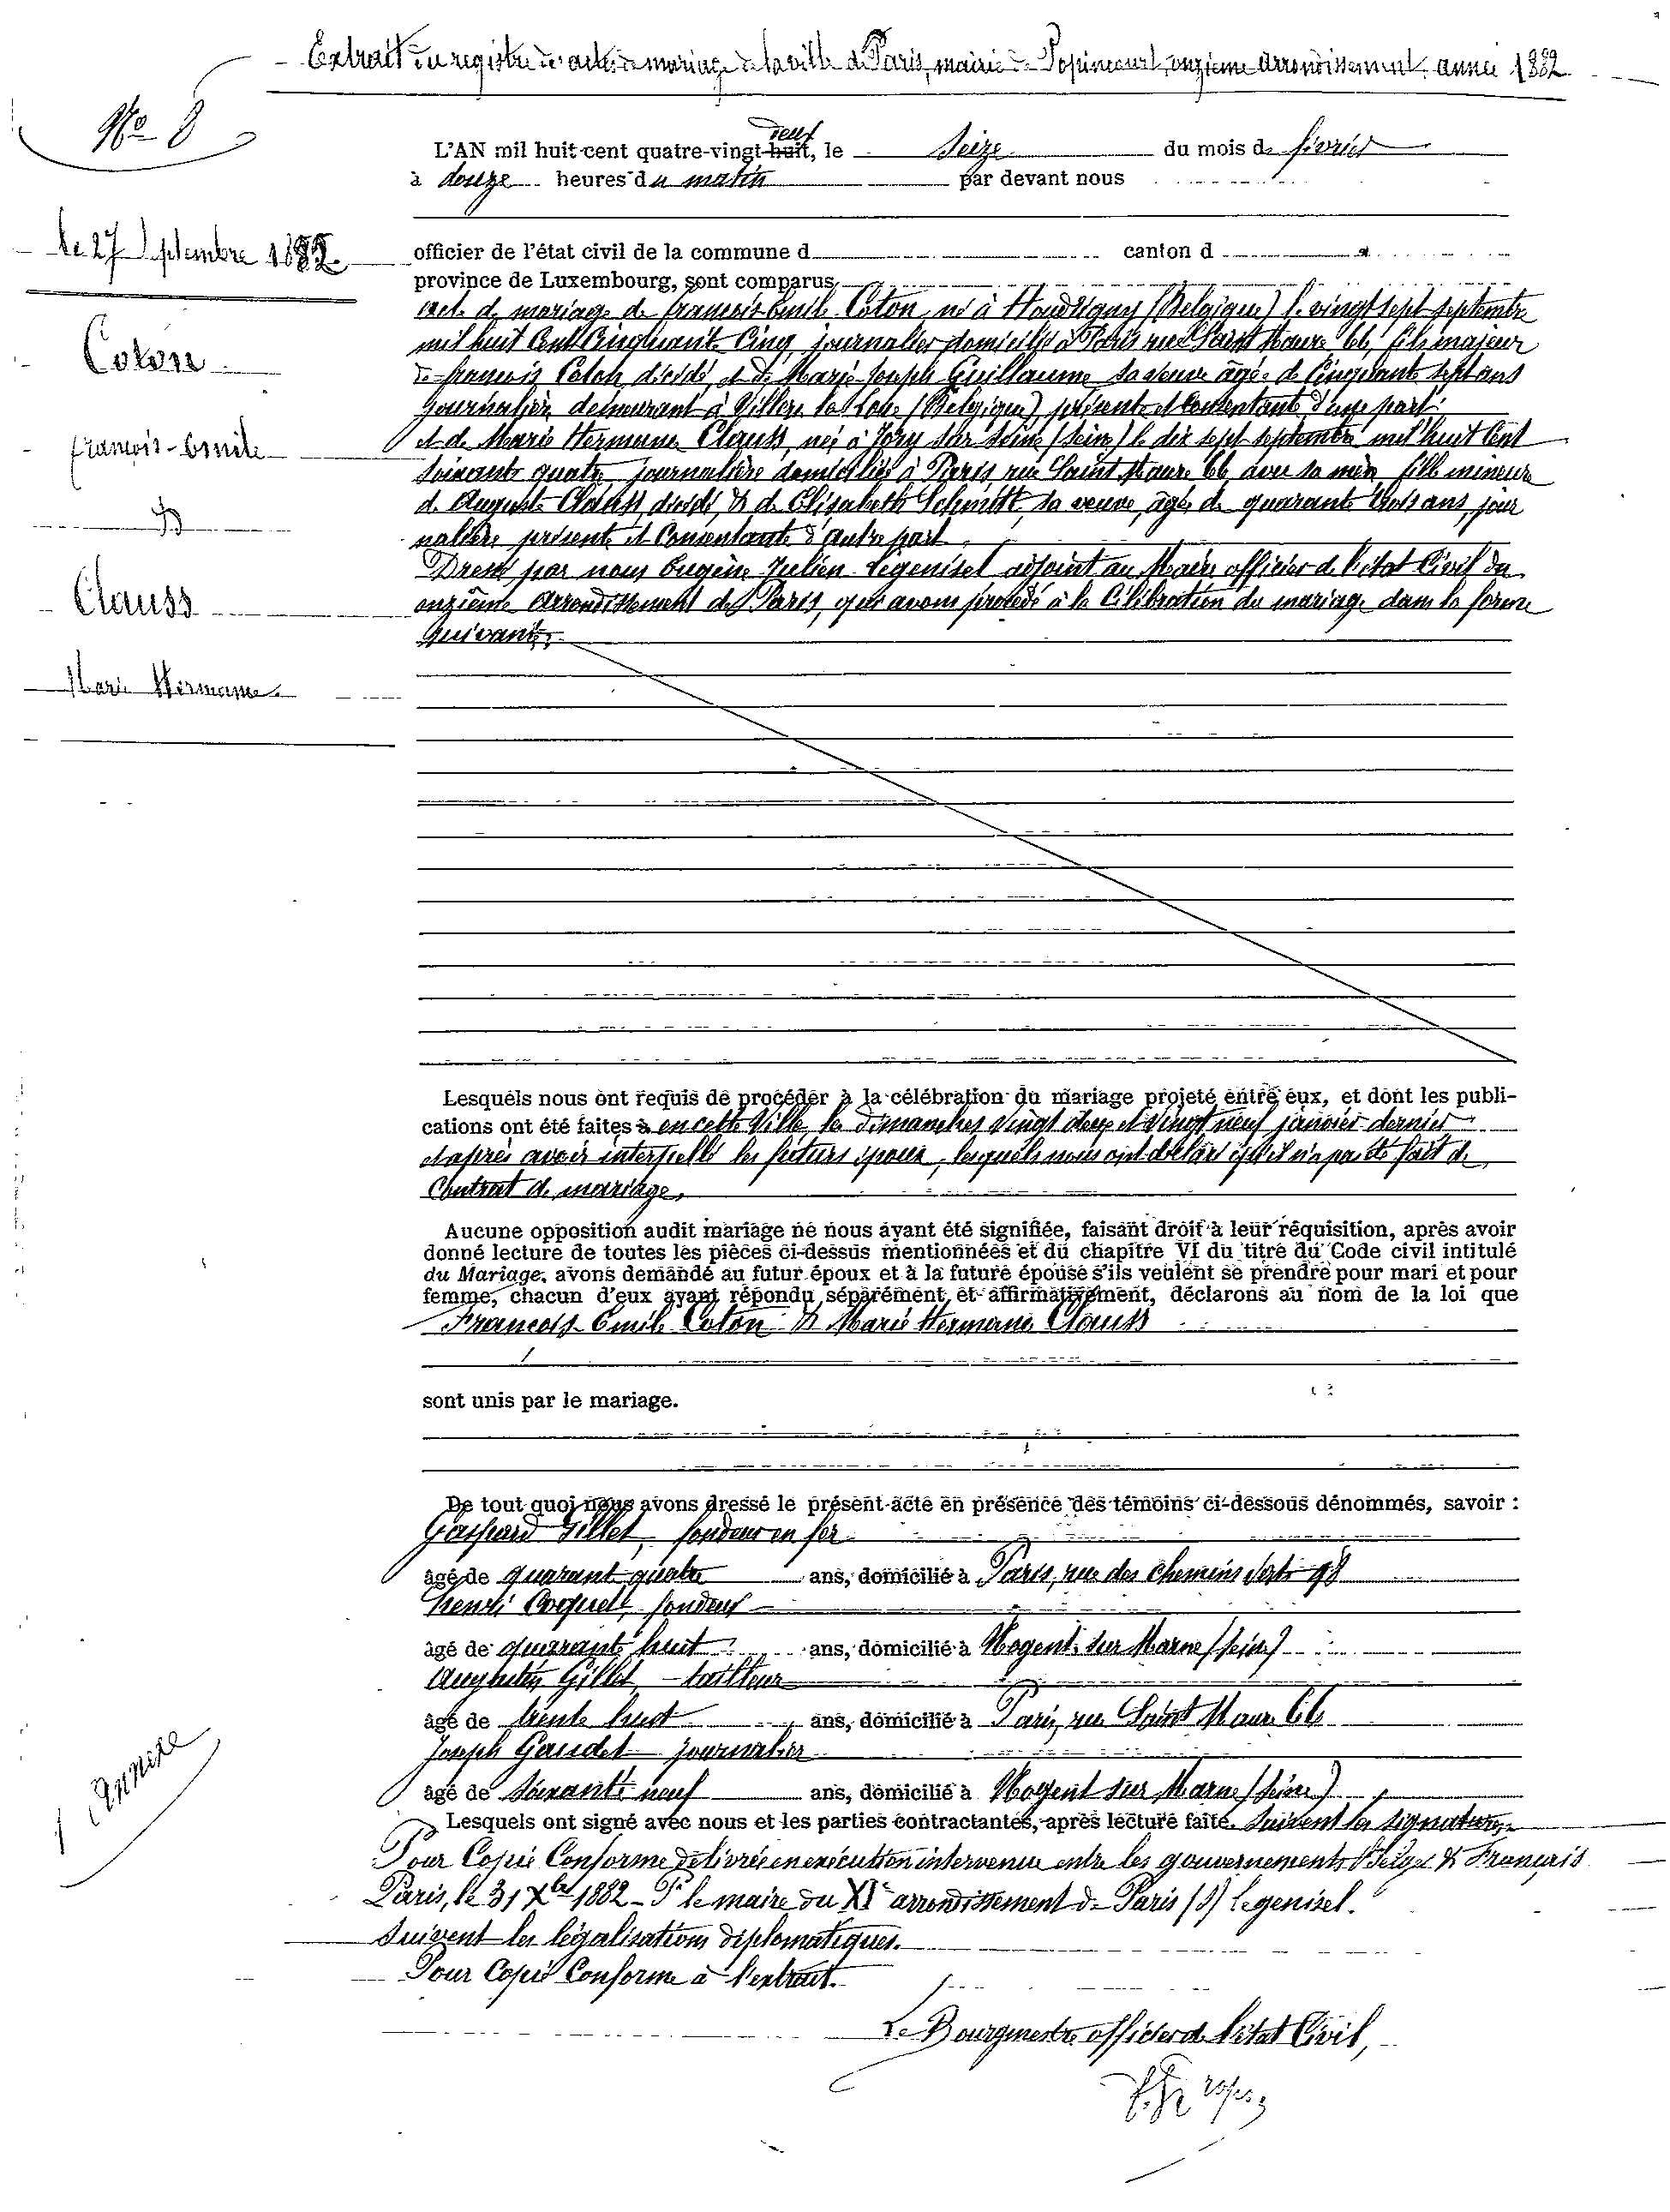 Extrait du registre des actes de mariage de la ville de Paris, mairie de Popincourt, onzième arrondissement, année 1882
No 8
L'AN mil huit cent quatre-vingt-huit, le Seize du mois de février
deux
à douze heures du matin par devant nous
le 27 Septembre 1882
officier de l'état civil de la commune d canton d
province de Luxembourg, sont comparus
acte de mariage de françois Emile Coton, né à Houdrigny (Belgique) le vingt sept septembre
mil huit cent Cinquante Cinq, journalier domicilié à Paris rue Saint Maure 66, fils majeur
Coton
de françois Coton décédé, et de Marie Joseph Guillaume sa veuve âgée de Cinquante sept ans
journalière demeurant à Villers la Loue (Belgique) présente et Consentante d'une part
et de Marie Hermance Clauss, née à Jvry sur Seine (Seine) le dix sept septembre mil huit Cent
françois-Emile
soixante quatre, journalière domiciliée à Paris, rue Saint Maure 66, avec sa mère, fille mineure
de Auguste Clauss, décédé, & de Elisabeth Schmitt, sa veuve, âgée de quarante trois ans, jour
&
nalière présente et Consentante d'autre part
Dressé par nous Eugène Julien Legenisel adjoint au Maire officier de l'état Civil du
Clauss
onzième arrondissement de Paris, qui avons procédé à la Célébration du mariage dans la forme
suivante:
Marie Hermance
Lesquels nous ont requis de procéder à la célébration du mariage projeté entre eux, et dont les publi-
cations ont été faites à en cette Ville, les dimanches vingt deux et vingt neuf janvier dernier
et après avoir interpellé les futurs époux, lesquels nous ont déclaré qu'il n'a pas été fait de
Contrat de mariage.
Aucune opposition audit mariage ne nous ayant été signifiée, faisant droit à leur réquisition, après avoir
donné lecture de toutes les pièces ci-dessus mentionnées et du chapitre VI du titre du Code civil intitulé
du Mariage, avons demandé au futur époux et à la future épouse s'ils veulent se prendre pour mari et pour
femme, chacun d'eux ayant répondu séparément et affirmativement, déclarons au nom de la loi que
François Emile Coton & Marie Hermance Clauss
sont unis par le mariage.
De tout quoi nous avons dressé le présent acte en présence des témoins ci-dessous dénommés, savoir :
Gaspard Gillet, fondeur en fer
âgé de quarante quatre ans, domicilié à Paris, rue des chemins verts 98
henri Coquel, fondeur
âgé de quarante huit ans, domicilié à Nogent sur Marne (Seine)
Augustin Gillet, tailleur
âgé de trente huit ans, domicilié à Paris, rue Saint Maure 66
Joseph Gaudet journalier
âgé de soixante neuf ans, domicilié à Nogent sur Marne (Seine)
1 annexe
Lesquels ont signé avec nous et les parties contractantes, après lecture faite. Suivent les signatures
Pour Copie Conforme délivrée en exécution intervenue entre les gouvernements Belge & Français
Paris, le 31 Xbre 1882 - Pr le maire du XIe arrondissement de Paris (S) Legenisel.
Suivent les légalisations diplomatiques.
Pour Copie Conforme à l'extrait.
Le Bourgmestre officier de l'état Civil,